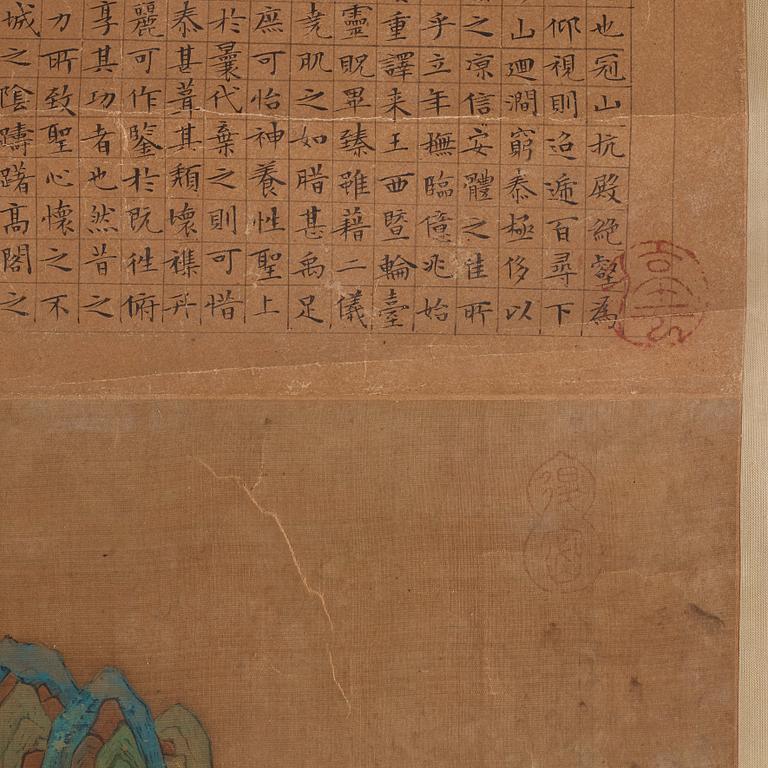 也冠山抗殿絶壑為
仰視則迢遞百尋下
山迴澗窮泰極侈以
之涼信安體之佳所
乎立年撫臨億兆始
重譯来王西暨輪臺
靈貺畢臻雖藉二儀
堯肌之如腊甚禹足
庶可怡神養性聖上
於曩代棄之則可惜
泰甚葺其頹壞襍丹
麗可作鑒於既往俯
享其功者也然昔之
力所致聖心懷之不
城之陰躊躇高閣之